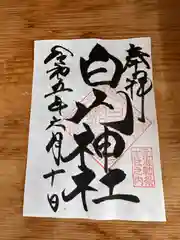 奉拝
白人神社
令和五年六月十日